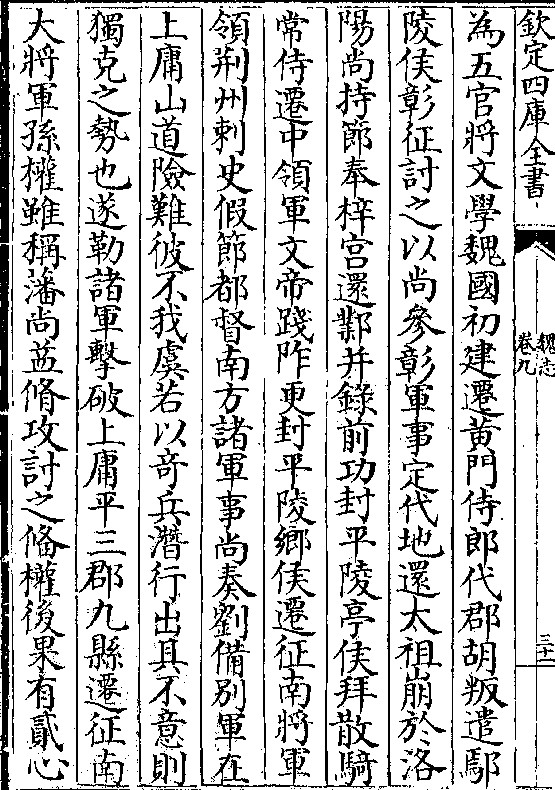 欽定四庫全書
魏志
卷九
三十一
為五官將文學魏國初建遷黃門侍郎代郡胡叛遣鄢
陵侯彰征討之以尚參彰軍事定代地還太祖崩於洛
陽尚持節奉梓宮還鄴并錄前功封平陵亭侯拜散騎
常侍遷中領軍文帝踐阼更封平陵鄉侯遷征南將軍
領荆州刺史假節都督南方諸軍事尚奏劉備別軍在
上庸山道險難彼不我虞若以奇兵潛行出其不意則
獨克之勢也遂勒諸軍擊破上庸平三郡九縣遷征南
大將軍孫權雖稱藩尚益脩攻討之備權後果有貳心